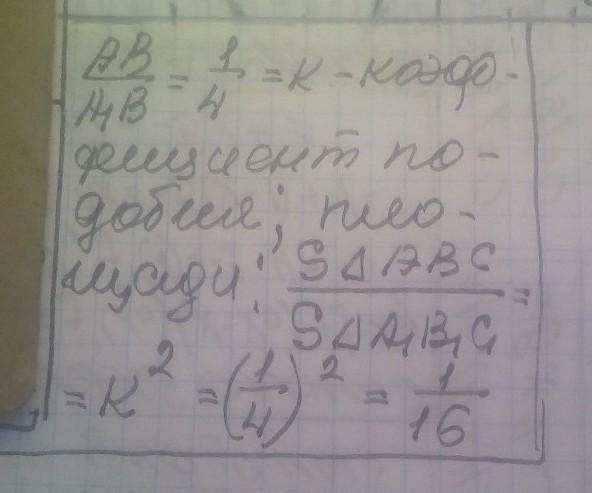 AB/A₁B = 1/4 = K - коэф-
фициент по-
добия; пло-
щади: S△ABC/S△A₁B₁C₁ =
= K² = (1/4)² = 1/16